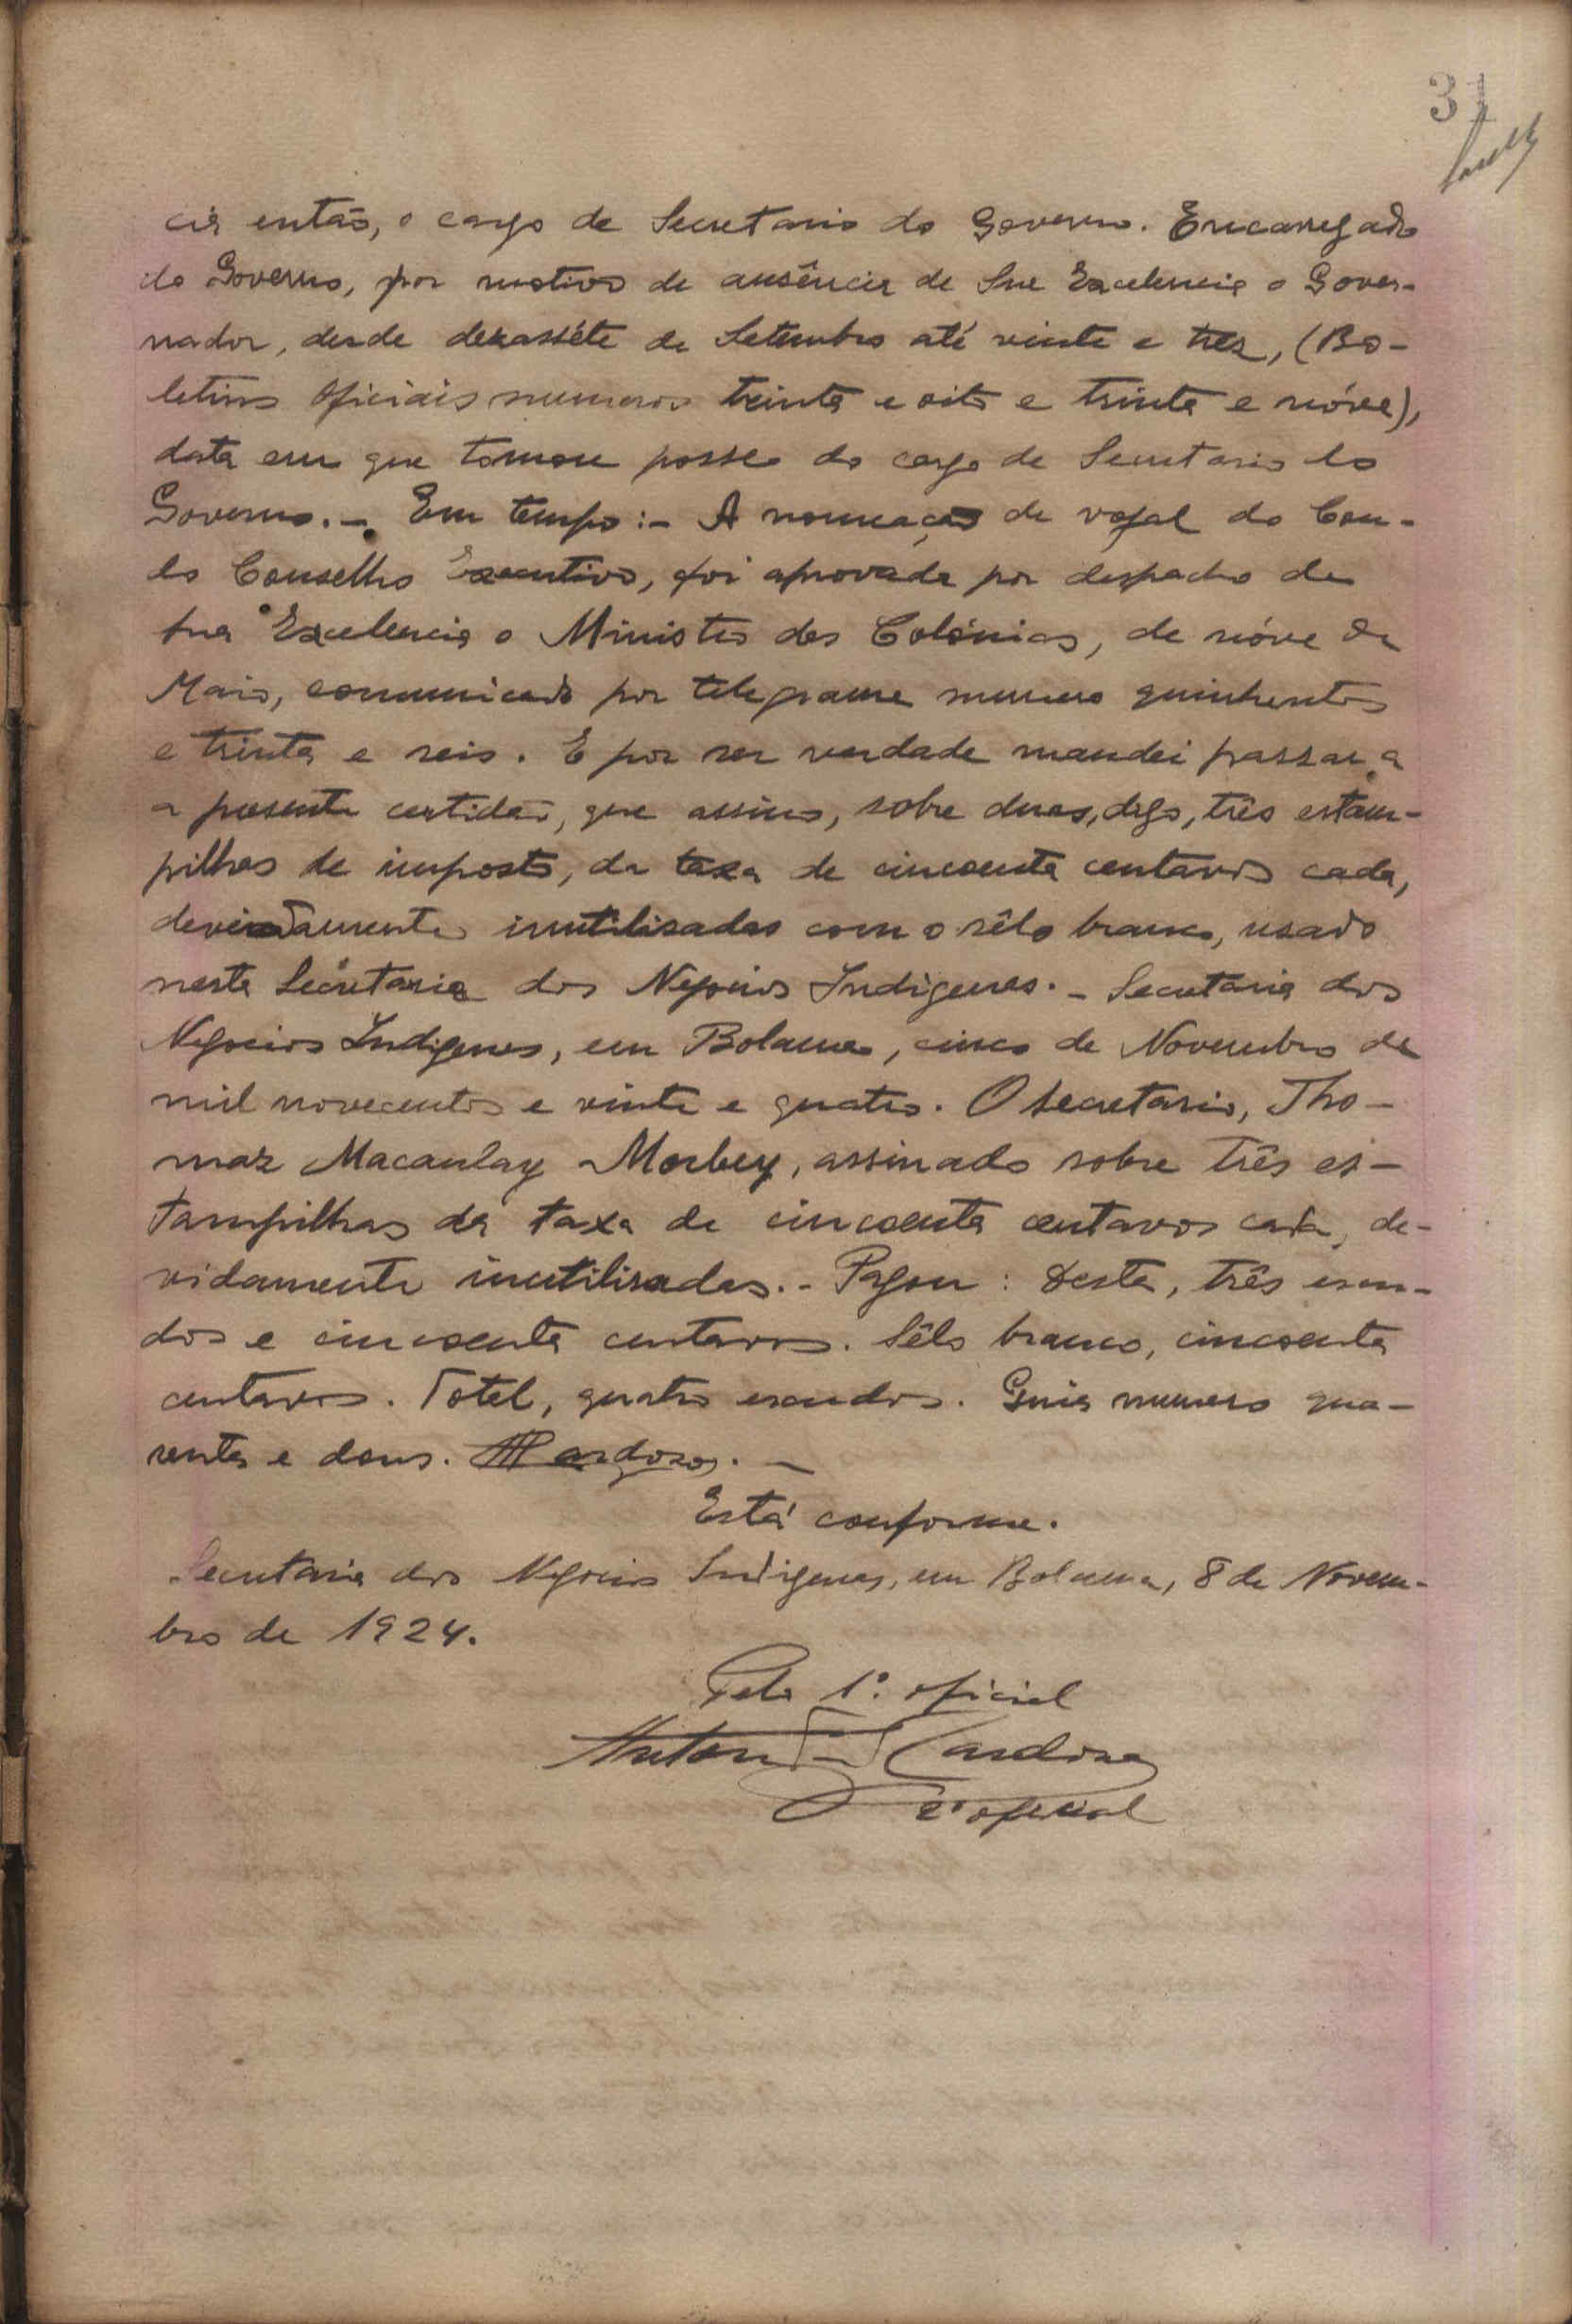 31
cia então, o cargo de Secretario do Governo. Encarregado
do Governo, por motivo de ausência de Sua Excelencia o Gover-
nador, desde dezasséte de Setembro até vinte e tres, (Bo-
letins Oficiais numeros trinta e oito e trinta e nóve),
data em que tomou posse do cargo de Secretario do
Governo. - Em tempo: - A nomeação de vogal do Con-
do Conselho Executivo, foi aprovada por despacho de
Sua Excelencia o Ministro das Colónias, de nóve de
Maio, comunicado por telegrama numero quinhentos
e trinta e seis. E por ser verdade mandei passar a
a presente certidão, que assino, sobre duas, digo, três estam-
pilhas de imposto, da taxa de cincoenta centavos cada,
devidamente inutilisadas com o sêlo branco, usado
nesta Secretaria dos Negocios Indigenas. - Secretaria dos
Negocios Indigenas, em Bolama, cinco de Novembro de
mil novecentos e vinte e quatro. O Secretario, Tho-
maz Macaulay Morbey, assinado sobre três es-
tampilhas da taxa de cincoenta centavos cada, de-
vidamente inutilisadas. - Pagou: Desta, três escu-
dos e cincoenta centavos. Sêlo branco, cincoenta
centavos. Total, quatro escudos. Guia numero qua-
renta e dous. Cardoso. -
Está conforme.
Secretaria dos Negocios Indigenas, em Bolama, 8 de Novem-
bro de 1924.
Pelo 1º oficial
Antonio Cardoso
2º oficial